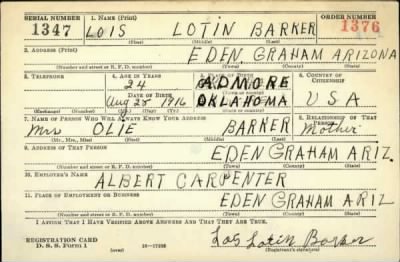 SERIAL NUMBER 1. NAME (Print) ORDER NUMBER
1347 LOIS LOTIN BARKER 1376
(First) (Middle) (Last)
2. ADDRESS (Print)
EDEN GRAHAM ARIZONA
(Number and street or R. F. D. number) (Town) (County) (State)
3. TELEPHONE 4. AGE IN YEARS 5. PLACE OF BIRTH 6. COUNTRY OF CITIZENSHIP
24 ADMORE
DATE OF BIRTH (Town or county)
Aug 28 1916 OKLAHOMA U S A
(Exchange) (Number) (Mo.) (Day) (Yr.) (State or country)
7. NAME OF PERSON WHO WILL ALWAYS KNOW YOUR ADDRESS 8. RELATIONSHIP OF THAT PERSON
Mrs OLIE BARKER Mother
(Mr., Mrs., Miss) (First) (Middle) (Last)
9. ADDRESS OF THAT PERSON
EDEN GRAHAM ARIZ.
(Number and street or R. F. D. number) (Town) (County) (State)
10. EMPLOYER'S NAME
ALBERT CARPENTER
11. PLACE OF EMPLOYMENT OR BUSINESS
EDEN GRAHAM ARIZ
(Number and street or R. F. D. number) (Town) (County) (State)
I AFFIRM THAT I HAVE VERIFIED ABOVE ANSWERS AND THAT THEY ARE TRUE.
REGISTRATION CARD
D. S. S. Form 1 (over) 16-17105 Lotin Barker
(Registrant's signature)